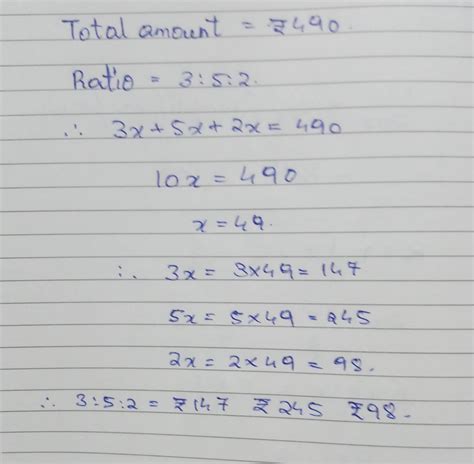 Total amount = ₹490.
Ratio = 3:5:2.
∴ 3x+5x+2x=490
10x=490
x=49.
∴ 3x= 3x49=147
5x= 5x49=245
2x= 2x49=98.
∴ 3:5:2=₹147 ₹245 ₹98.